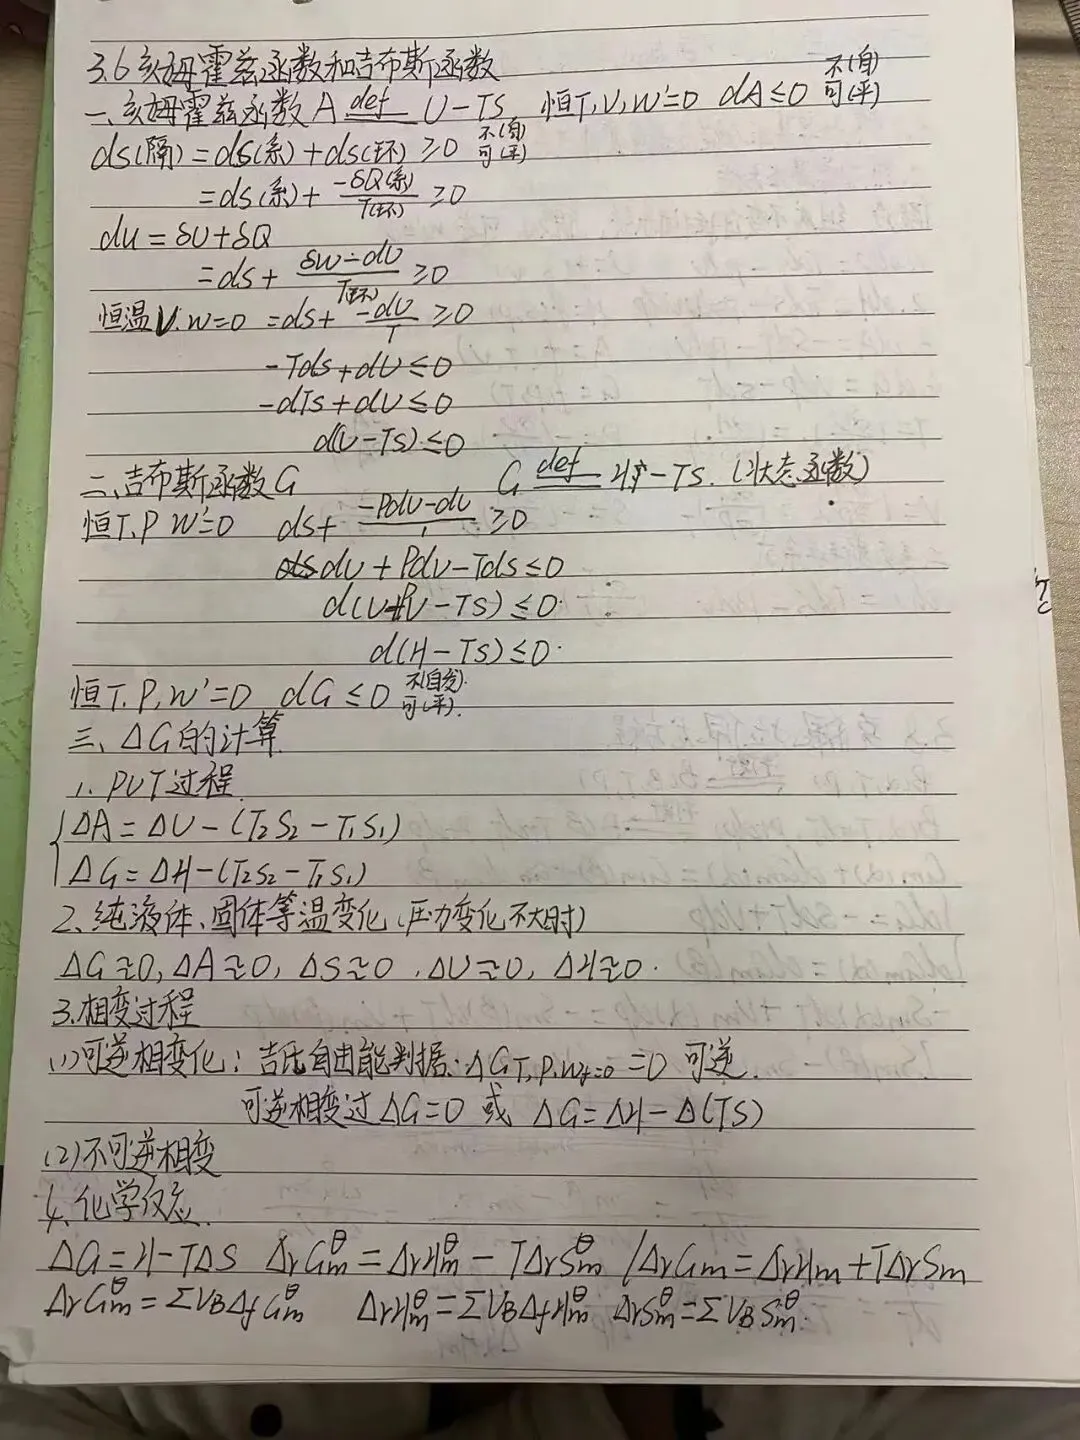 3.6 亥姆霍兹函数和吉布斯函数
一、亥姆霍兹函数 A def U-TS 恒T,V,W'=0 dA≤0 不(自) 可(平)
ds(隔)=ds(系)+ds(环)≥0 不(自) 可(平)
=ds(系)+ -δQ(系)/T(环) ≥0
du=δU+δQ
=ds+ δW-dU/T(环) ≥0
恒温V.W=0 =ds+ -dU/T ≥0
-Tds+dU≤0
-dTs+dU≤0
d(U-TS)≤0
二、吉布斯函数G G def H-TS.(状态函数)
恒T.P W'=0 ds+ -PdV-dU ≥0
dU+PdV-Tds≤0
d(U+PV-TS)≤0.
d(H-TS)≤0.
恒T.P,W'=0 dG≤0 不(自发). 可(平).
三、ΔG的计算.
1. PVT过程.
ΔA=ΔU-(T2S2-T1S1)
ΔG=ΔH-(T2S2-T1S1)
2、纯液体、固体等温变化(压力变化不大时)
ΔG≈0,ΔA≈0,ΔS≈0,ΔU≈0,ΔH≈0.
3.相变过程
(1)可逆相变化:吉氏自由能判据:ΔG T,P,Wf=0 =0 可逆.
可逆相变过ΔG=0 或 ΔG=ΔH-Δ(TS)
(2)不可逆相变
4、化学反应.
ΔG=H-TΔS ΔrGm^θ=ΔrHm^θ-TΔrSm^θ /ΔrGm=ΔrHm+TΔrSm
ΔrGm^θ=ΣVBΔfGm^θ ΔrHm^θ=ΣVBΔfHm^θ ΔrSm^θ=ΣVBSm^θ.